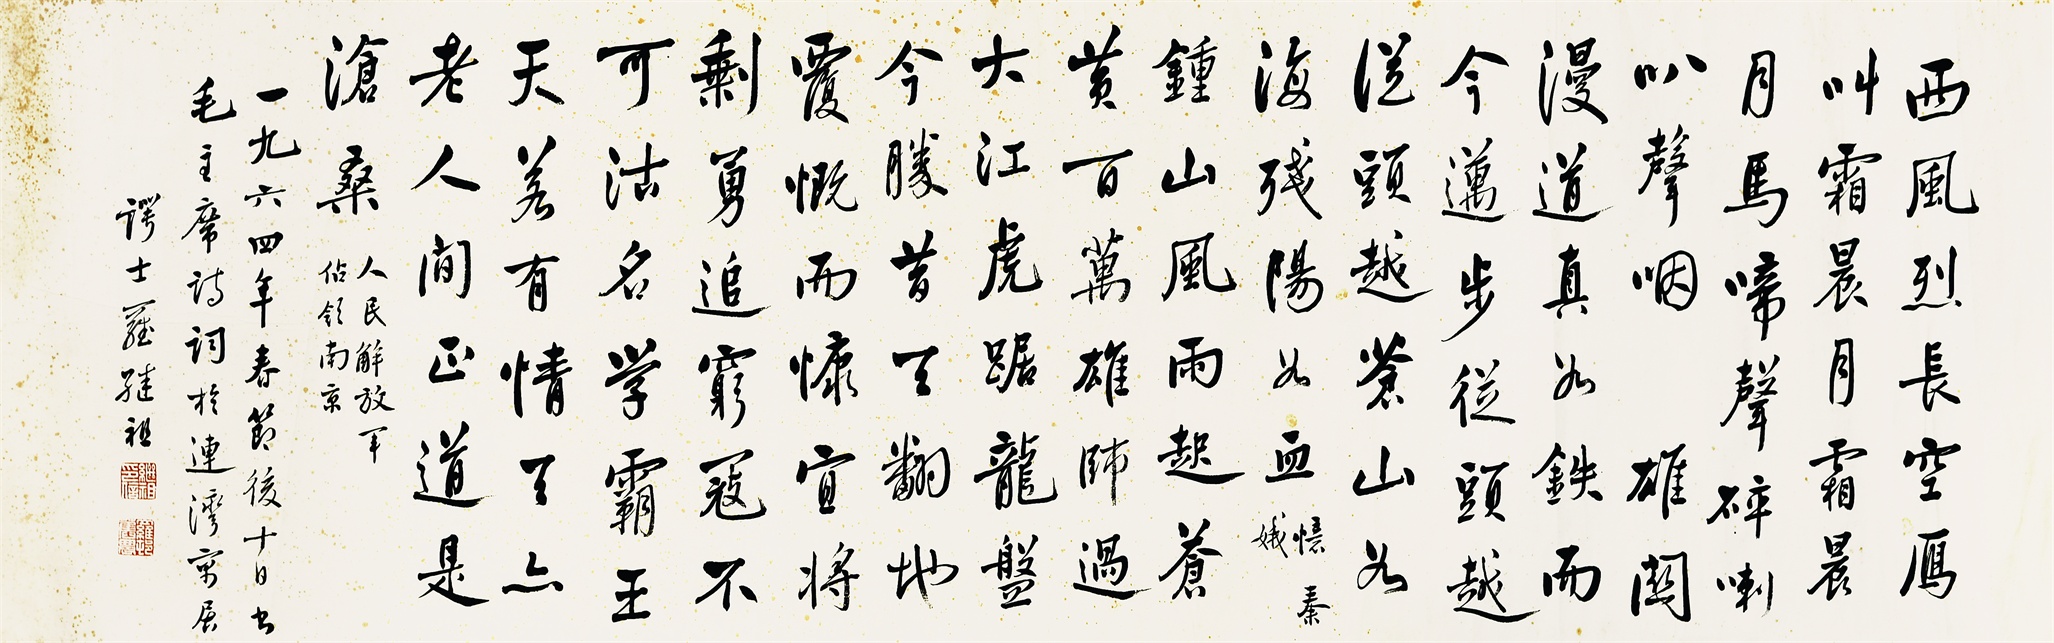 西風烈長空鴈
叫霜晨月霜晨
月馬啼聲碎喇
叭聲咽 雄關
漫道真如鉄而
今邁步從頭越
從頭越蒼山如
海殘陽如血
憶秦
娥
鍾山風雨起蒼
黃百萬雄師過
大江虎踞龍盤
今勝昔天翻地
覆慨而慷宜將
剩勇追窮寇不
可沽名学霸王
天若有情天亦
老人间正道是
滄桑
人民解放军
佔領南京
一九六四年春節後十日书
毛主席詩詞於連灣寓居
諤士羅継祖